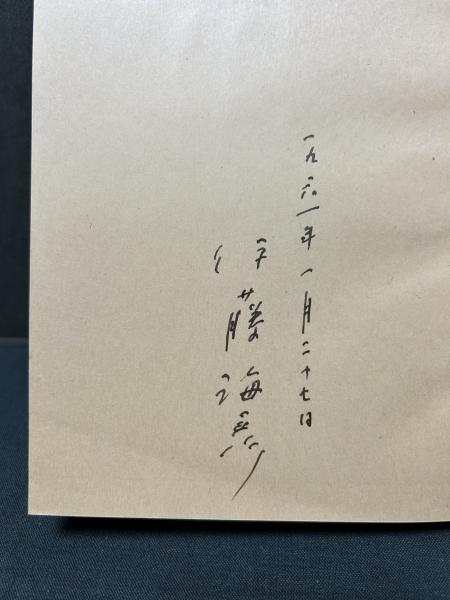 一九六一年一月二十七日
伊藤海彦